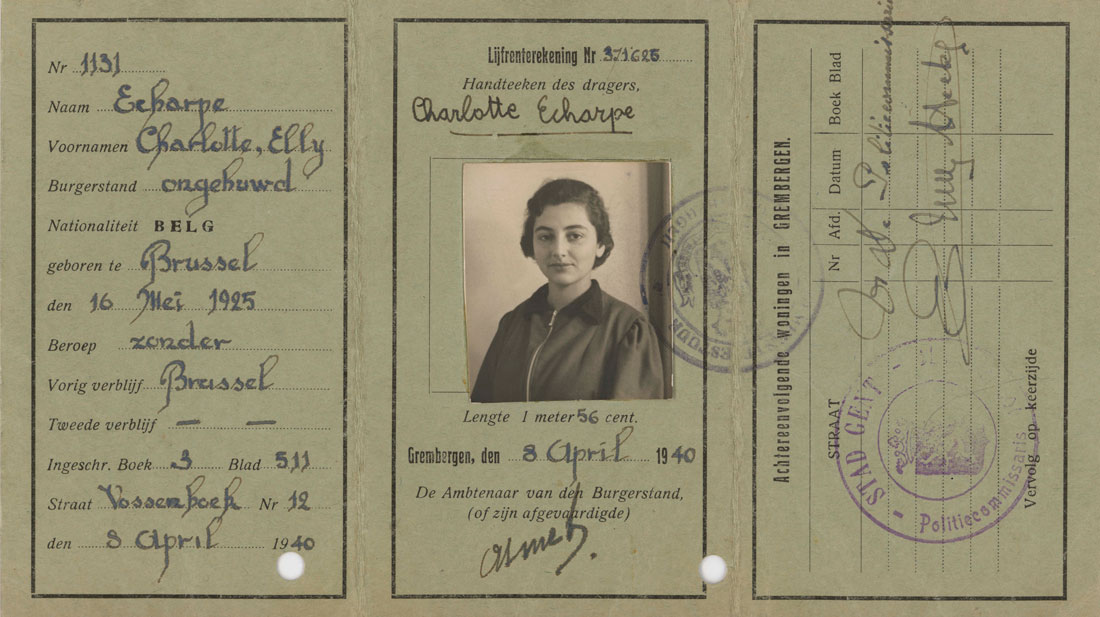 Nr 1131
Naam Echarpe
Voornamen Charlotte, Elly
Burgerstand ongehuwd
Nationaliteit BELG
geboren te Brussel
den 16 Mei 1925
Beroep zonder
Vorig verblijf Brussel
Tweede verblijf — —
Ingeschr. Boek 3 Blad 511
Straat Vossenhoek Nr 12
den 8 April 1940
Lijfrenterekening Nr 371625
Handteeken des dragers,
Charlotte Echarpe
Lengte 1 meter 56 cent.
Grembergen, den 8 April 1940
De Ambtenaar van den Burgerstand,
(of zijn afgevaardigde)
Achtereenvolgende woningen in GREMBERGEN.
STRAAT Nr Afd. Datum Boek Blad
De Politiecommissaris
STAD GENT
Politiecommissaris
Vervolg op keerzijde